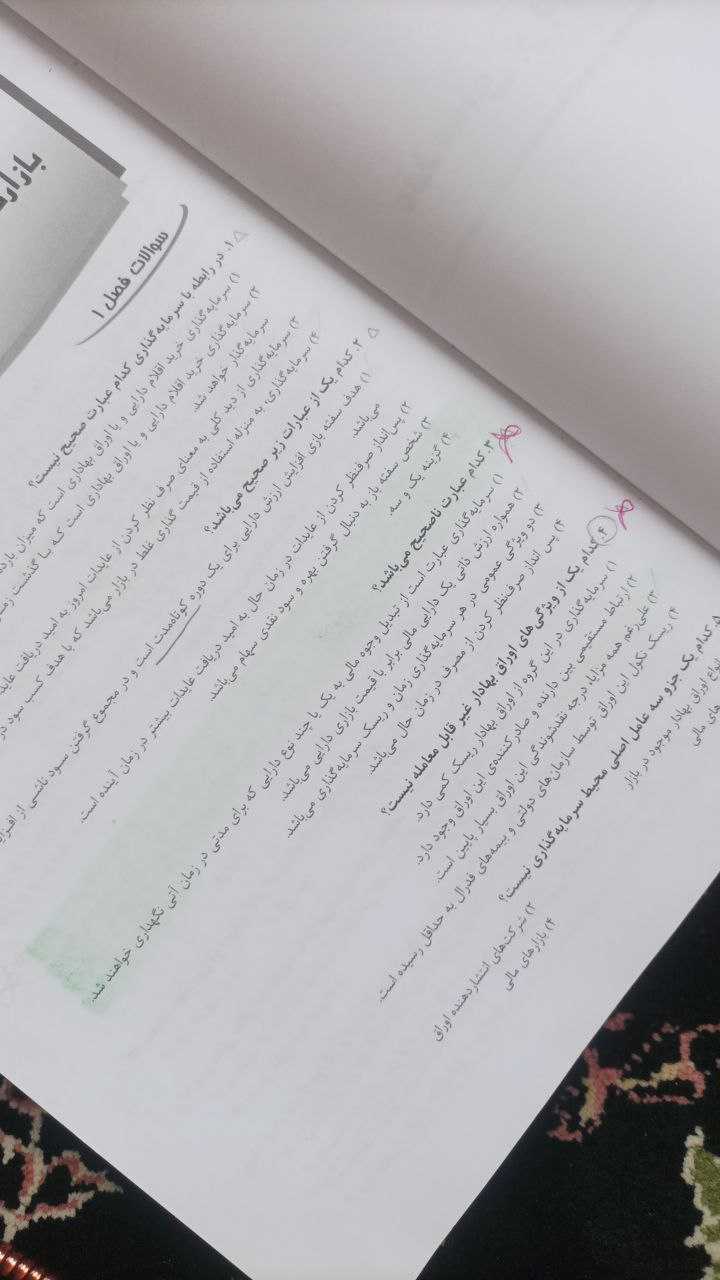 بازارها
سوالات فصل ۱
۱. در رابطه با سرمایه‌گذاری کدام عبارت صحیح نیست؟
۱) سرمایه‌گذاری خرید اقلام دارایی و یا اوراق بهاداری است که میزان بازده
۲) سرمایه‌گذاری خرید اقلام دارایی و یا اوراق بهاداری است که با گذشت زمان
سرمایه‌گذار خواهند شد.
۳) سرمایه‌گذاری از دید کلی به معنای صرف نظر کردن از عایدات امروز به امید دریافت
۴) سرمایه‌گذاری، به منزله استفاده از قیمت گذاری غلط در بازار می‌باشد که با هدف کسب سود در
۲. کدام یک از عبارات زیر صحیح می‌باشد؟
۱) هدف سفته بازی افزایش ارزش دارایی برای یک دوره کوتاه‌مدت است و در مجموع گرفتن سود ناشی از
می‌باشد.
۲) پس‌انداز صرف‌نظر کردن از عایدات در زمان حال به امید دریافت عایدات بیشتر در زمان آینده است.
۳) شخص سفته باز به دنبال گرفتن بهره و سود نقدی سهام می‌باشد.
۴) گزینه یک و سه.
۳. کدام عبارت ناصحیح می‌باشد؟
۱) سرمایه‌گذاری عبارت است از تبدیل وجوه مالی به یک یا چند نوع دارایی که برای مدتی در زمان آتی نگهداری خواهند شد.
۲) همواره ارزش ذاتی یک دارایی مالی برابر با قیمت بازاری دارایی می‌باشد.
۳) دو ویژگی عمومی در هر سرمایه‌گذاری زمان و ریسک سرمایه‌گذاری می‌باشد.
۴) پس انداز صرف‌نظر کردن از مصرف در زمان حال می‌باشد.
۴. کدام یک از ویژگی‌های اوراق بهادار غیر قابل معامله نیست؟
۱) سرمایه‌گذاری در این گروه از اوراق بهادار ریسک کمی دارد.
۲) ارتباط مستقیمی بین دارنده و صادرکننده‌ی این اوراق وجود دارد.
۳) علی‌رغم همه مزایا، درجه نقدشوندگی این اوراق بسیار پایین است.
۴) ریسک نکول این اوراق توسط سازمان‌های دولتی و بیمه‌های فدرال به حداقل رسیده است.
۵. کدام یک جزو سه عامل اصلی محیط سرمایه‌گذاری نیست؟
نواع اوراق بهادار موجود در بازار
۲) شرکت‌های انتشاردهنده اوراق
های مالی
۴) بازارهای مالی